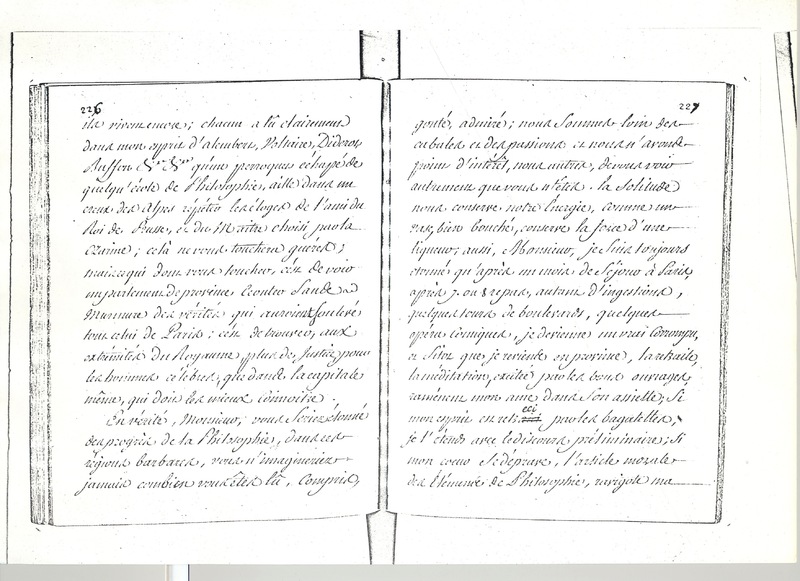 226
ils vivent encore; chacun a lû clairement
dans mon esprit d'alembert, Voltaire, Diderot,
Buffon &ra &ra qu'une perroques échapé de
quelqu'école de Philosophie, aille dans un
creux des Alpes répéter les éloges de l'ami du
Roi de Prusse, et du Maitre choisi par la
Czarine; celà ne vous touchera guéres;
mais ce qui doit vous toucher, c'est de voir
un parlement de province écouter sans
murmure des vérités qui auroient soulevé
tout celui de Paris; c'est de trouver, aux
extrémités du Royaume, plus de justice pour
les hommes célebres, que dans la capitale
même, qui doit les mieux connoitre.
En vérité, Monsieur, vous seriez étonné
des progrès de la Philosophie, dans ces
régions barbares, vous n'imagineriez
jamais combien vous étes lû, compris,
227
gouté, admiré; nous sommes loin des
cabales et des passions et nous n'avons
point d'intérêt, nous autres, de vous voir
autrement que vous n'étes. la solitude
nous conserve notre Énergie, comme un
vase bien bouché, conserve la force d'une
liqueur; aussi, Monsieur, je suis toujours
étonné qu'après un mois de séjour à Paris,
après 7. ou 8 repas, autant d'ingestions,
quelques tours de boulevards, quelques
opéra comiques, je devienne un vrai corrompu,
et sitot que je reviens en province, la retraite,
la méditation, excitée par les bons ouvrages,
raménent mon ame dans son assiette; si
mon esprit en retréci par les bagatelles,
je l'étends avec le discours préliminaire; si
mon coeur se déprave, l'article morale
des Elémens de Philosophie, ravigote ma